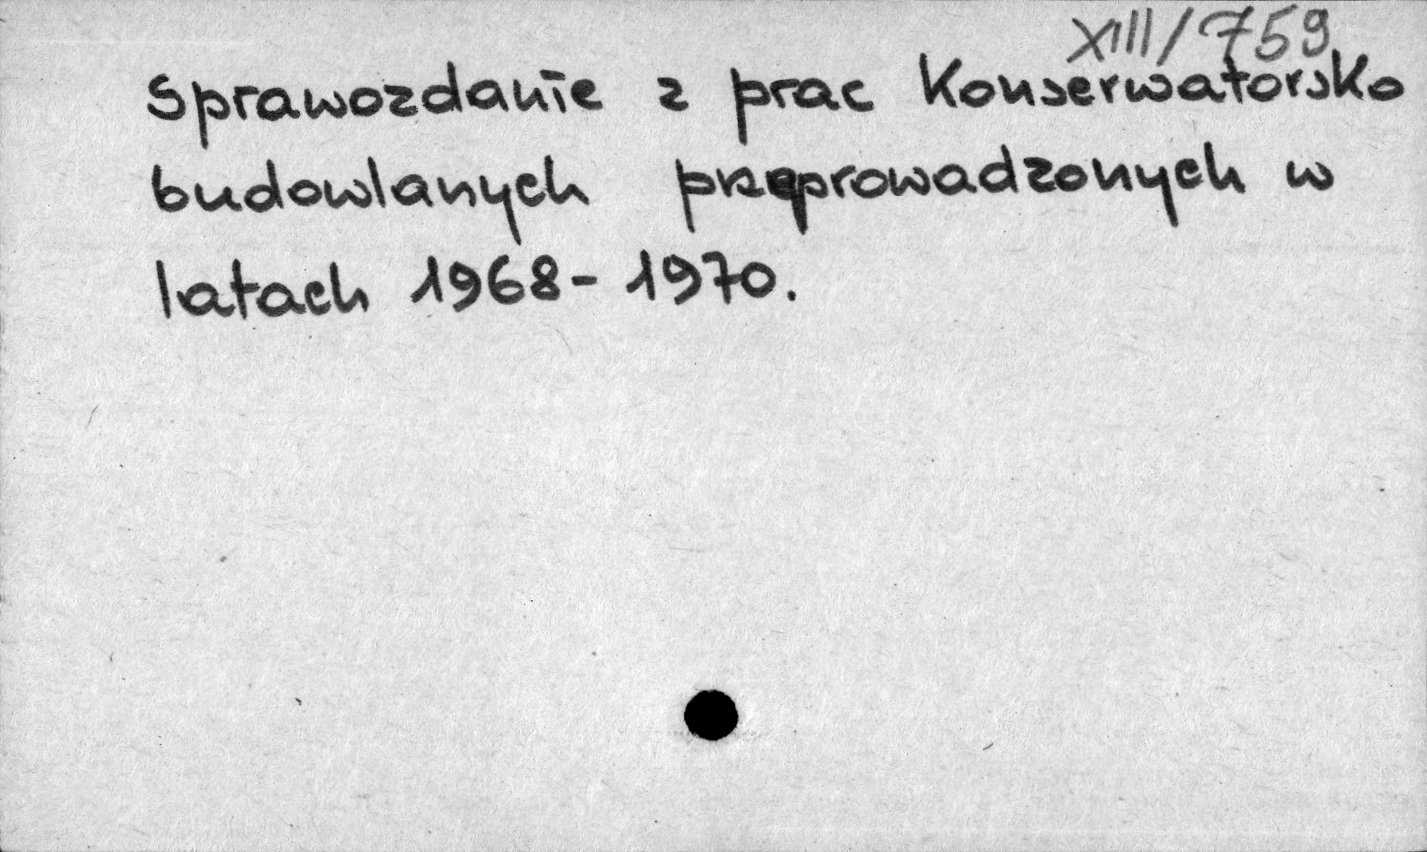 XIII/759
Sprawozdanie z prac Konserwatorsko
budowlanych przeprowadzonych w
latach 1968-1970.